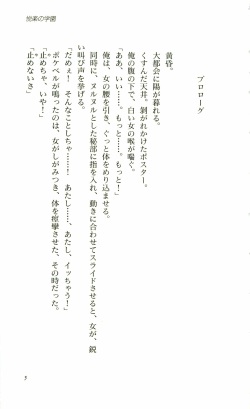 悦楽の学園
プロローグ
黄昏。
大都会に陽が暮れる。
くすんだ天井。剝がれかけたポスター。
俺の腹の下で、白い女の喉が喘ぐ。
「ああ、いい……。もっと……。もっと！」
俺は、女の腰を引き、ぐっと体をめり込ませる。
同時に、ヌルヌルとした秘部に指を入れ、動きに合わせてスライドさせると、女が、鋭
い叫び声を挙げる。
「だめぇ！　そんなことしちゃ……！　あたし……、あたし、イッちゃう！」
ポケベルが鳴ったのは、女がしがみつき、体を痙攣させた、その時だった。
「止めちゃ、いや！」
「止めないさ」
5